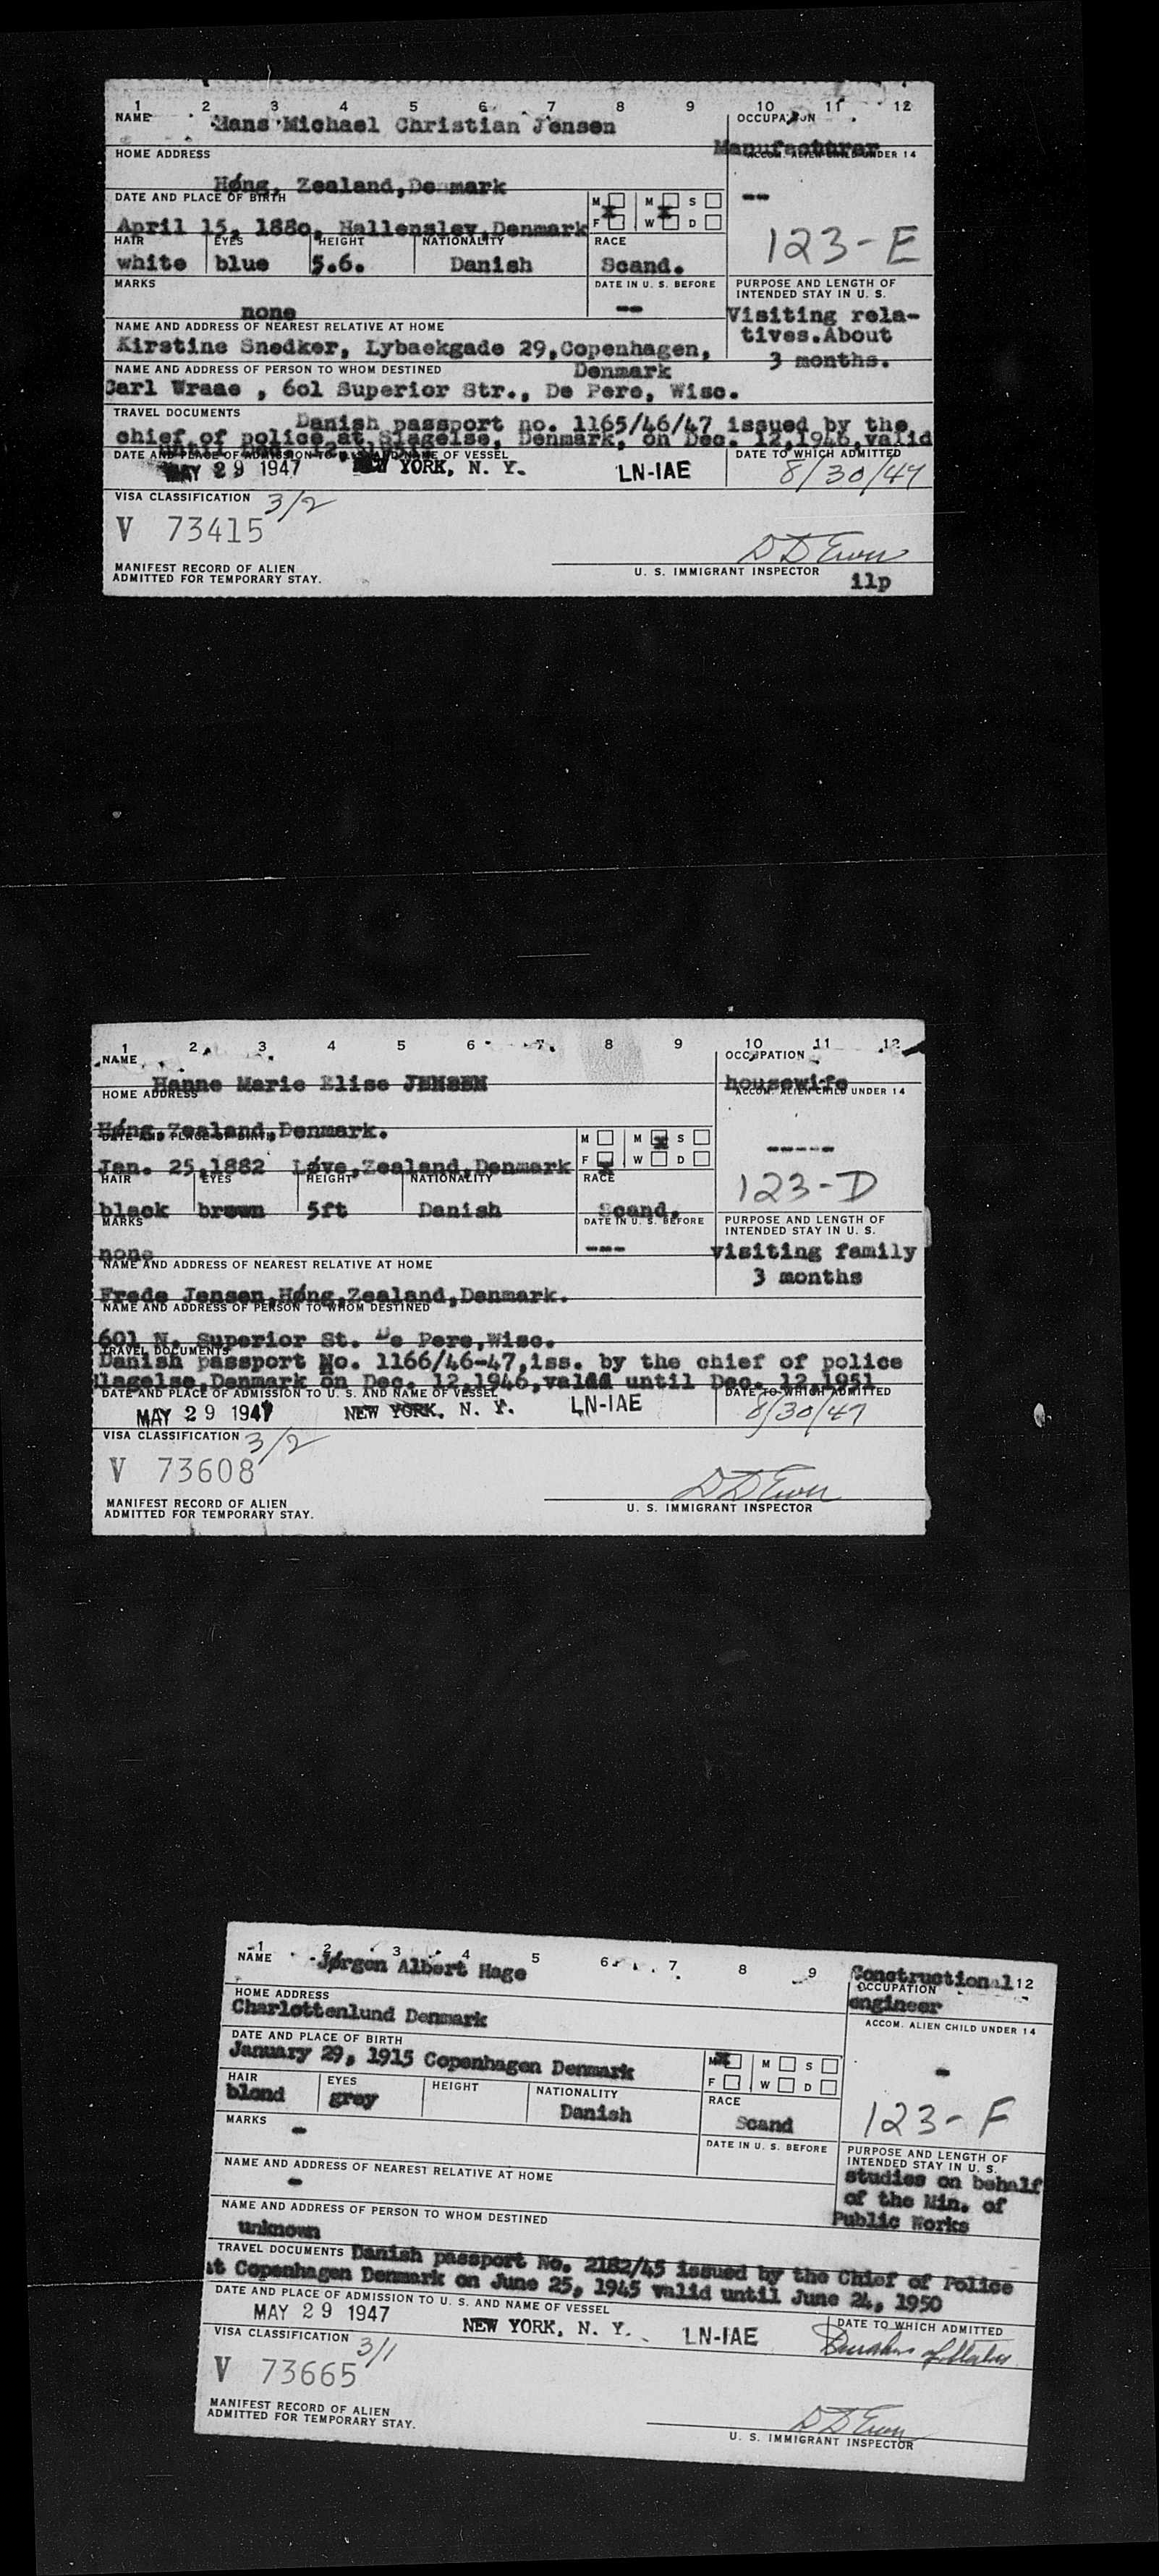 1 2 3 4 5 6 7 8 9 10 11 12
NAME Hans Michael Christian Jensen
OCCUPATION
Manufacturer
HOME ADDRESS
ACCOM. ALIEN CHILD UNDER 14
Høng, Zealand, Denmark
--
DATE AND PLACE OF BIRTH
M M S
F W D
April 15, 1880, Hallenslev, Denmark
123-E
HAIR EYES HEIGHT NATIONALITY RACE
white blue 5.6. Danish Scand.
MARKS
DATE IN U. S. BEFORE
PURPOSE AND LENGTH OF
INTENDED STAY IN U. S.
none
--
Visiting rela-
tives.About
3 months.
NAME AND ADDRESS OF NEAREST RELATIVE AT HOME
Kirstine Snedker, Lybaekgade 29, Copenhagen,
Denmark
NAME AND ADDRESS OF PERSON TO WHOM DESTINED
Carl Wraae , 601 Superior Str., De Pere, Wisc.
TRAVEL DOCUMENTS Danish passport no. 1165/46/47 issued by the
chief of police at Slagelse, Denmark, on Dec. 12, 1946, valid
DATE AND PLACE OF ADMISSION TO U. S. AND NAME OF VESSEL
DATE TO WHICH ADMITTED
MAY 29 1947 NEW YORK, N. Y. LN-IAE 8/30/47
VISA CLASSIFICATION 3/2
V 73415
D D Ewen
MANIFEST RECORD OF ALIEN
ADMITTED FOR TEMPORARY STAY.
U. S. IMMIGRANT INSPECTOR
ilp
1 2 3 4 5 6 7 8 9 10 11 12
NAME
OCCUPATION
Hanne Marie Elise JENSEN
housewife
HOME ADDRESS
ACCOM. ALIEN CHILD UNDER 14
Høng, Zealand, Denmark.
DATE AND PLACE OF BIRTH
M M S
F W D
-----
Jan. 25, 1882 Løve, Zealand, Denmark
123-D
HAIR EYES HEIGHT NATIONALITY RACE
black brown 5ft Danish Scand.
MARKS
DATE IN U. S. BEFORE
PURPOSE AND LENGTH OF
INTENDED STAY IN U. S.
none
---
visiting family
3 months
NAME AND ADDRESS OF NEAREST RELATIVE AT HOME
Frede Jensen, Høng, Zealand, Denmark.
NAME AND ADDRESS OF PERSON TO WHOM DESTINED
601 N. Superior St. De Pere, Wisc.
TRAVEL DOCUMENTS
Danish passport No. 1166/46-47, iss. by the chief of police
Slagelse, Denmark on Dec. 12, 1946, valid until Dec. 12, 1951
DATE AND PLACE OF ADMISSION TO U. S. AND NAME OF VESSEL
DATE TO WHICH ADMITTED
MAY 29 1947 NEW YORK, N. Y. LN-IAE 8/30/47
VISA CLASSIFICATION 3/2
V 73608
D D Ewen
MANIFEST RECORD OF ALIEN
ADMITTED FOR TEMPORARY STAY.
U. S. IMMIGRANT INSPECTOR
1 2 3 4 5 6 7 8 9 12
NAME Jørgen Albert Hage
Constructional
OCCUPATION
engineer
HOME ADDRESS
Charlottenlund Denmark
ACCOM. ALIEN CHILD UNDER 14
-
DATE AND PLACE OF BIRTH
January 29, 1915 Copenhagen Denmark
M M S
F W D
HAIR EYES HEIGHT NATIONALITY RACE
blond grey Danish Scand
123-F
MARKS
-
DATE IN U. S. BEFORE
PURPOSE AND LENGTH OF
INTENDED STAY IN U. S.
studies on behalf
of the Min. of
Public Works
NAME AND ADDRESS OF NEAREST RELATIVE AT HOME
-
NAME AND ADDRESS OF PERSON TO WHOM DESTINED
unknown
TRAVEL DOCUMENTS Danish passport No. 2182/45 issued by the Chief of Police
at Copenhagen Denmark on June 25, 1945 valid until June 24, 1950
DATE AND PLACE OF ADMISSION TO U. S. AND NAME OF VESSEL
DATE TO WHICH ADMITTED
MAY 29 1947 NEW YORK, N. Y. LN-IAE Duration of Status
VISA CLASSIFICATION 3/1
V 73665
D D Ewen
MANIFEST RECORD OF ALIEN
ADMITTED FOR TEMPORARY STAY.
U. S. IMMIGRANT INSPECTOR